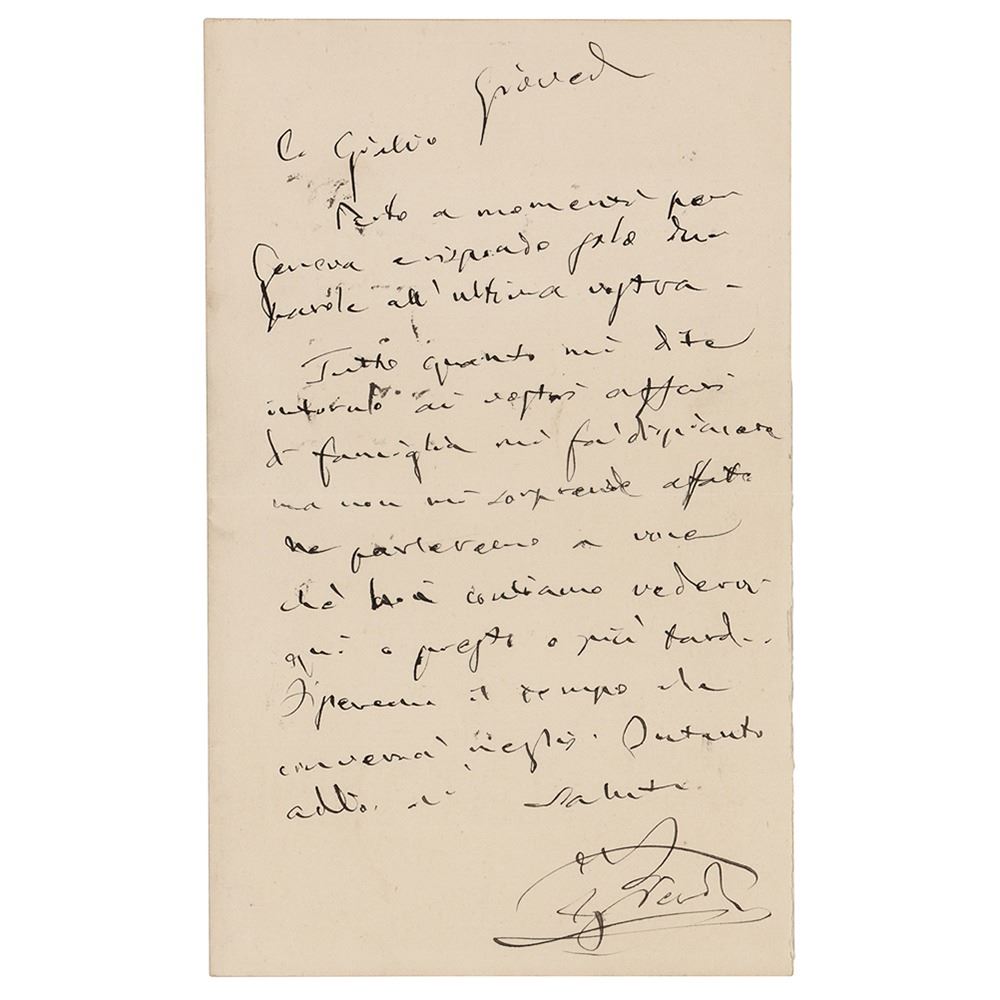 Giovedì
C. Giulio
Parto a momenti per
Genova e rispondo solo due
parole all'ultima vostra -
Tutto quanto mi dite
intorno ai vostri affari
di famiglia mi fa' dispiacere
ma non mi sorprende affatto
ne parleremo a voce
chè noi contiamo vedervi
qui o presto o più tardi.
il tempo che
converrà meglio. Intanto
addio. saluti
G Verdi